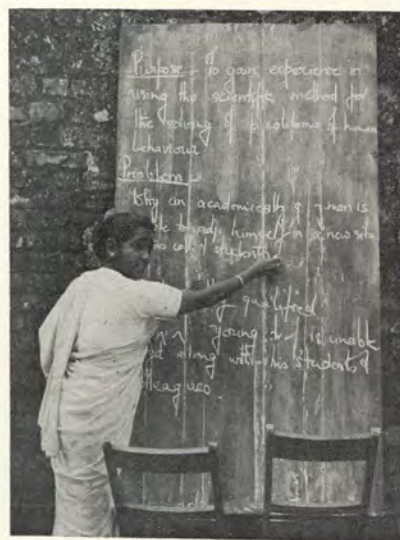 Purpose - To gain experience in
using the scientific method for
the solving of problems of human
behaviour
Problem -
Why an academically q. man is
himself in a new situ
students
qualified
young is unable
along with his students &
colleagues